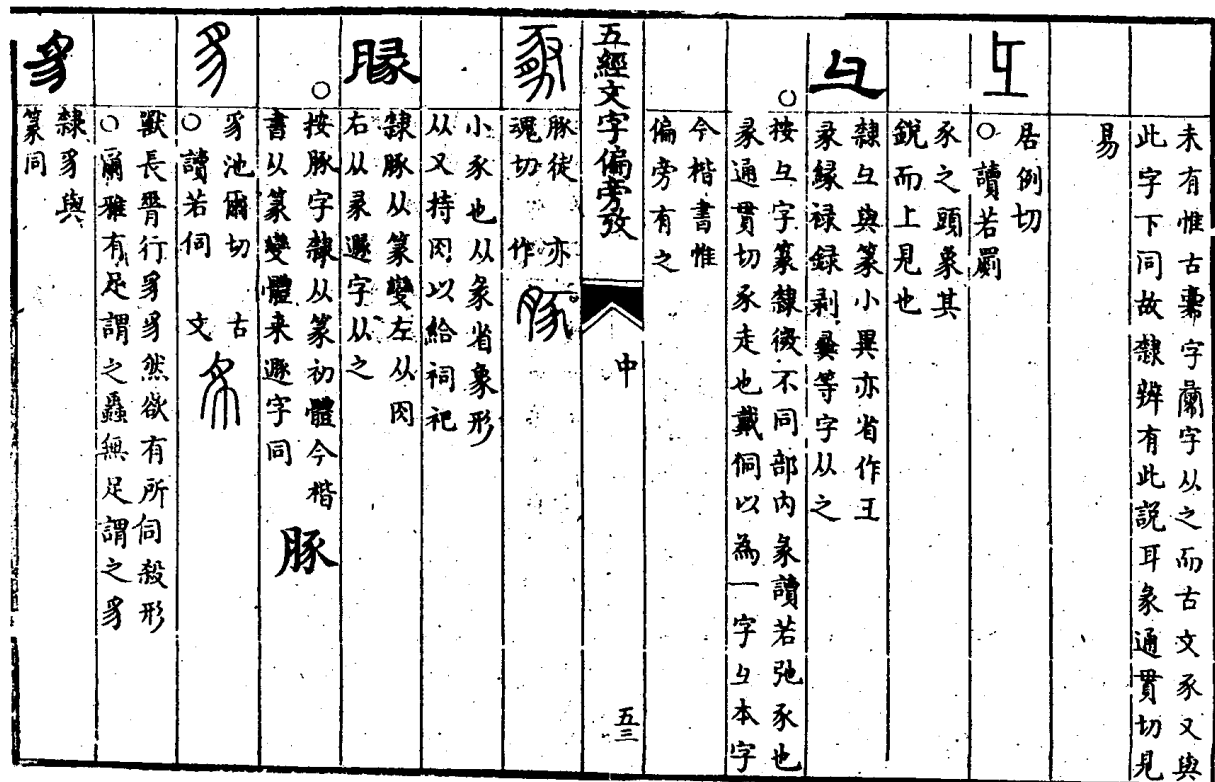 未有惟古𢑥字蕳字从之而古文豕又與
此字下同故隸辨有此説耳彖通貫切見
易
彑
居例切
○讀若罽
豕之頭象其
銳而上見也
彑
隸彑與篆小異亦省作彐
彖緣祿録剥彝等字从之
○按彑字篆隸微不同部内彖讀若弛豕也
彖通貫切豕走也戴侗以為一字彑本字
今楷書惟
偏旁有之
五經文字偏旁攷
中
五三
豚徒
魂切
亦
作
豚
小豕也从彖省象形
从又持肉以給祠祀
隸豚从篆變左从肉
右从彖遯字从之
○按豚字隸从篆初體今楷
書以篆變體来遯字同
豚
豸
豸池爾切
○讀若伺
古
文
獸長脊行豸豸然欲有所伺殺形
○爾雅有足謂之蟲無足謂之豸
豸
隸豸與
篆同